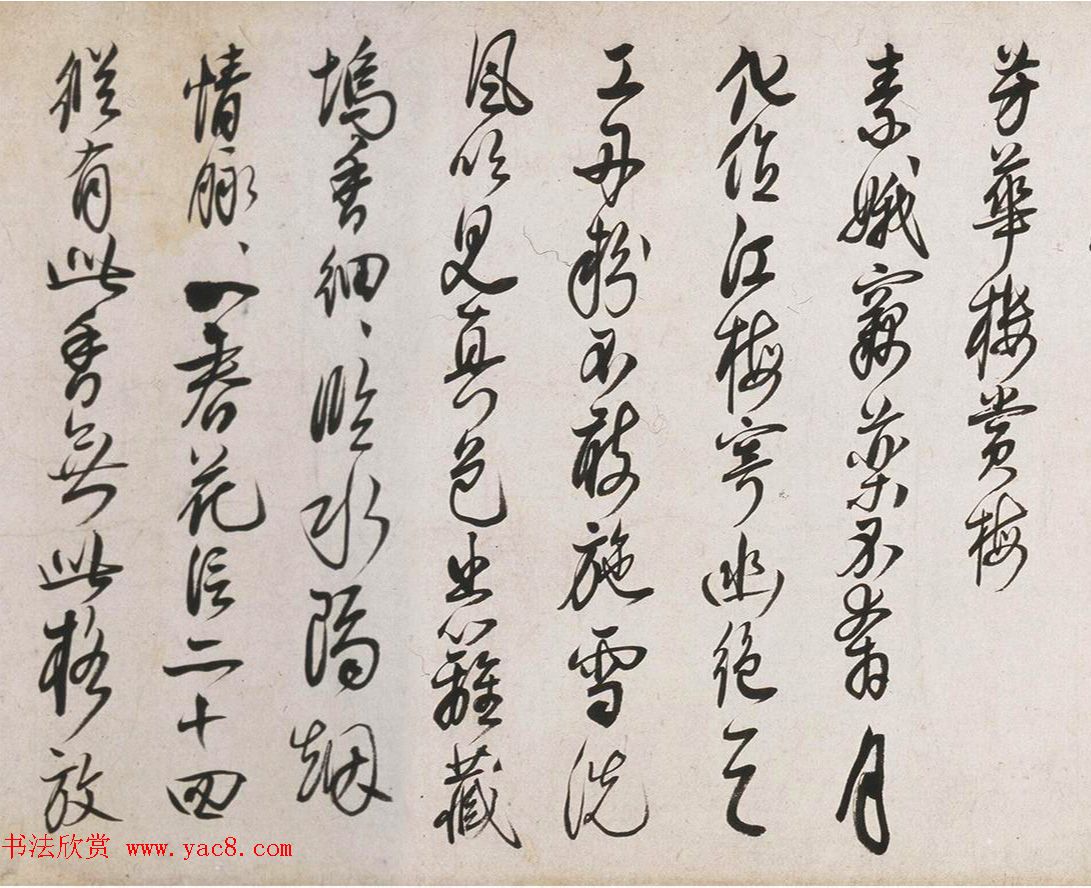 芳華樓賞梅
素娥竊藥不奔月
化作江梅寄幽絕天
工丹粉不敢施雪洗
風吹見真色出籬藏
塢香細、臨水隔烟
情脈、一春花信二十四
縱有此香無此格放
书法欣赏 www.yac8.com